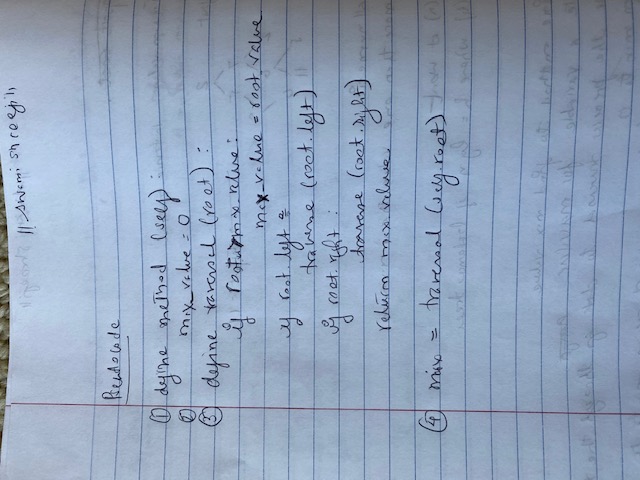 || Swami Shreeji ||
Pseudocode
① define method (self) :
② max_value = 0
③ define traversal (root) :
if root > max_value :
max_value = root value
if root.left :
traverse (root.left)
if root.right :
traverse (root.right)
return max_value
④ max = traversal (self.root)